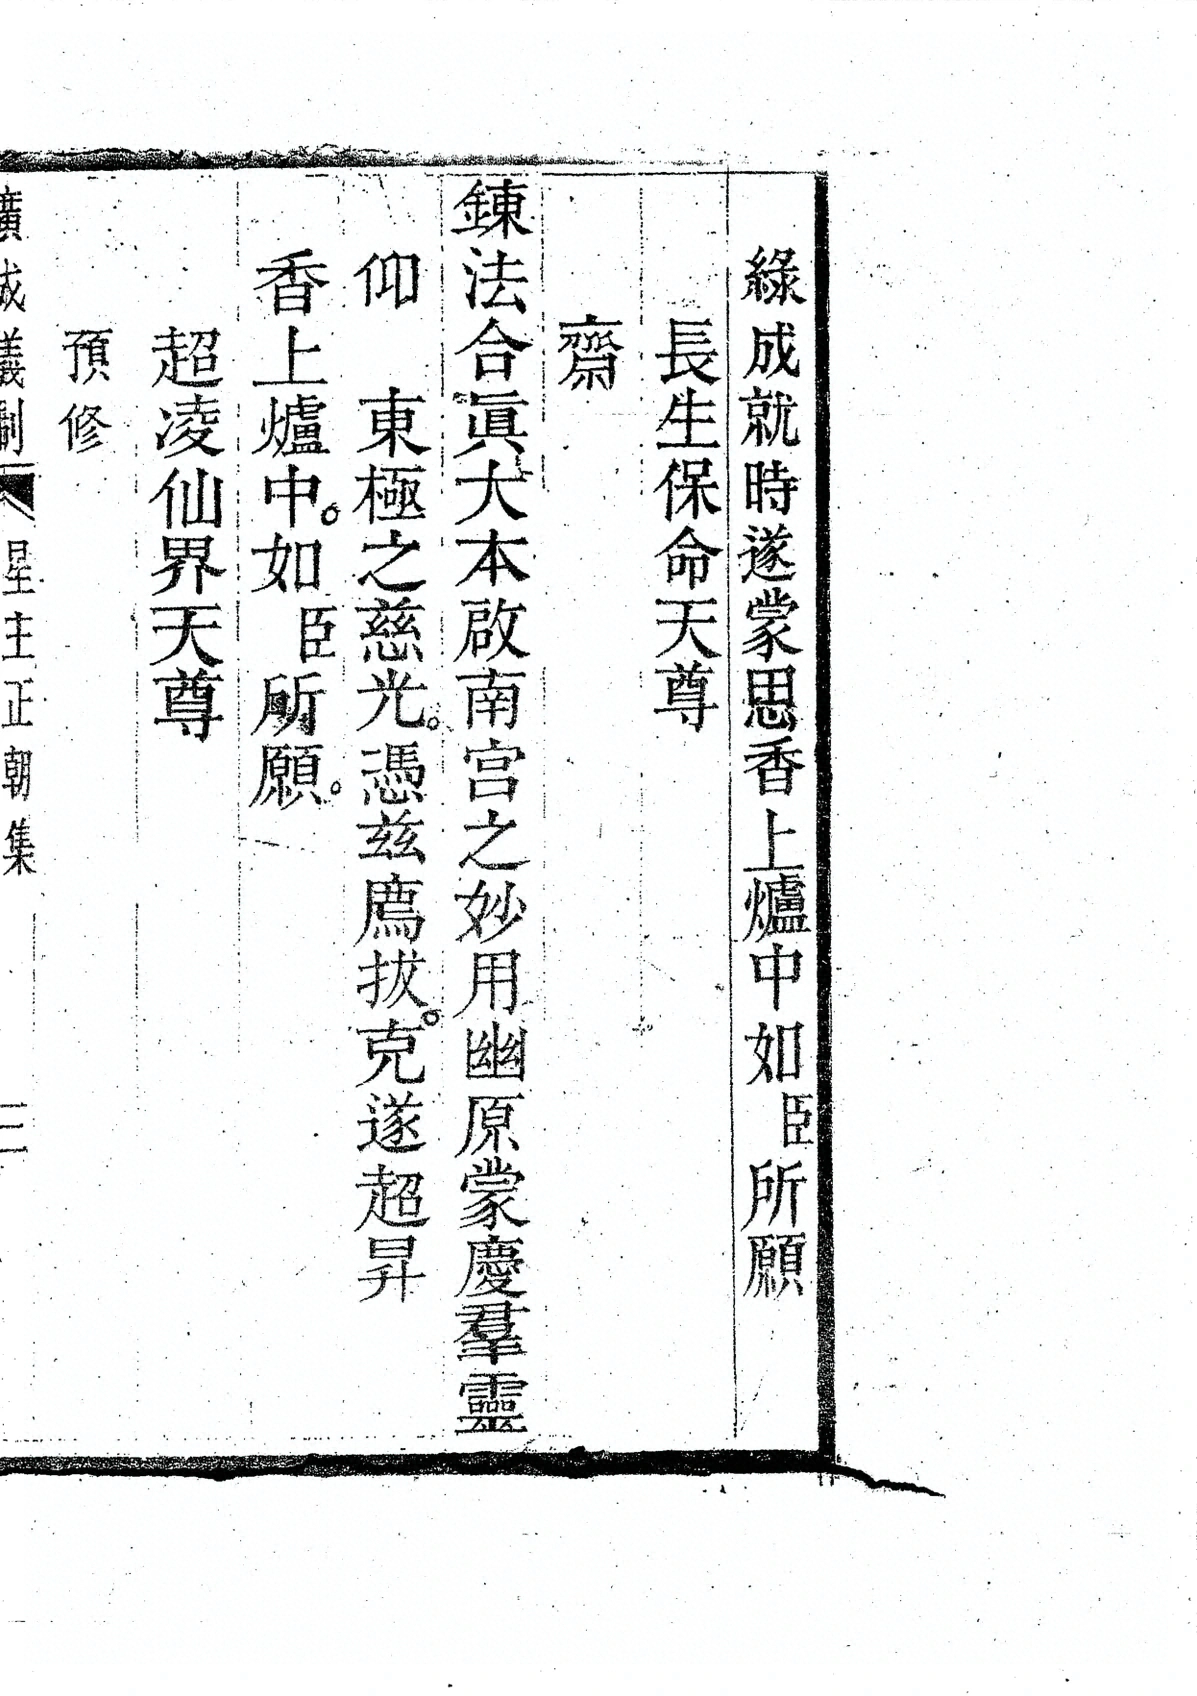 綠成就時遂蒙恩香上爐中如臣所願
長生保命天尊
齋
鍊法合眞大本啟南宮之妙用幽原蒙慶羣靈
仰　東極之慈光。憑兹薦拔。克遂超昇
香上爐中。如臣所願。
超凌仙界天尊
預修
廣成儀制　星主正朝集　三